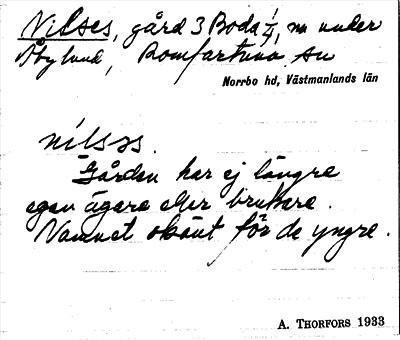 Nilses, gård 3 Boda 1/4, nu under
Åbylund, Romfartuna sn
Norrbo hd, Västmanlands län
nilsəs.
Gården har ej längre
egen ägare eller brukare.
Namnet okänt för de yngre.
A. THORFORS 1933